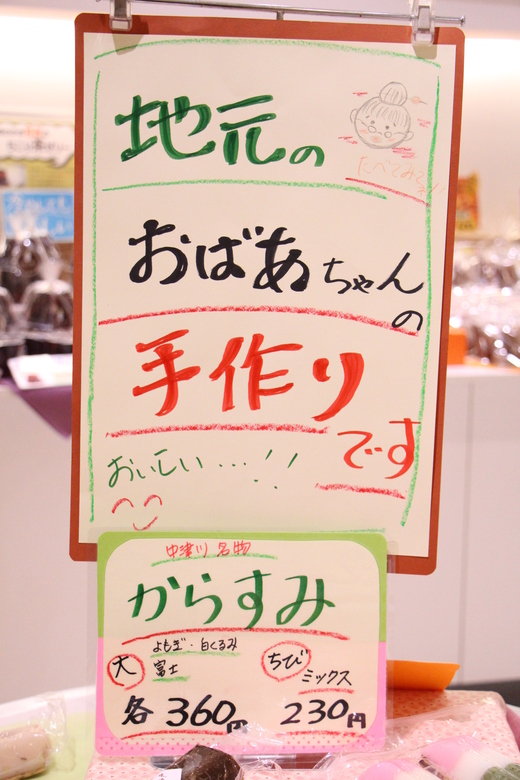 地元の
たべてみてネ!!
おばあちゃんの
手作り
です
おいしい…!!
中津川 名物
からすみ
大 よもぎ・白くるみ
富士
各360円
ちび
ミックス
230円